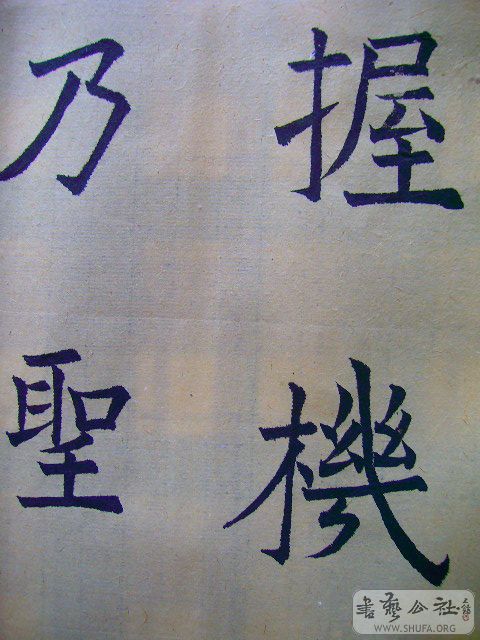 握機
乃聖
書藝公社
WWW.SHUFA.ORG